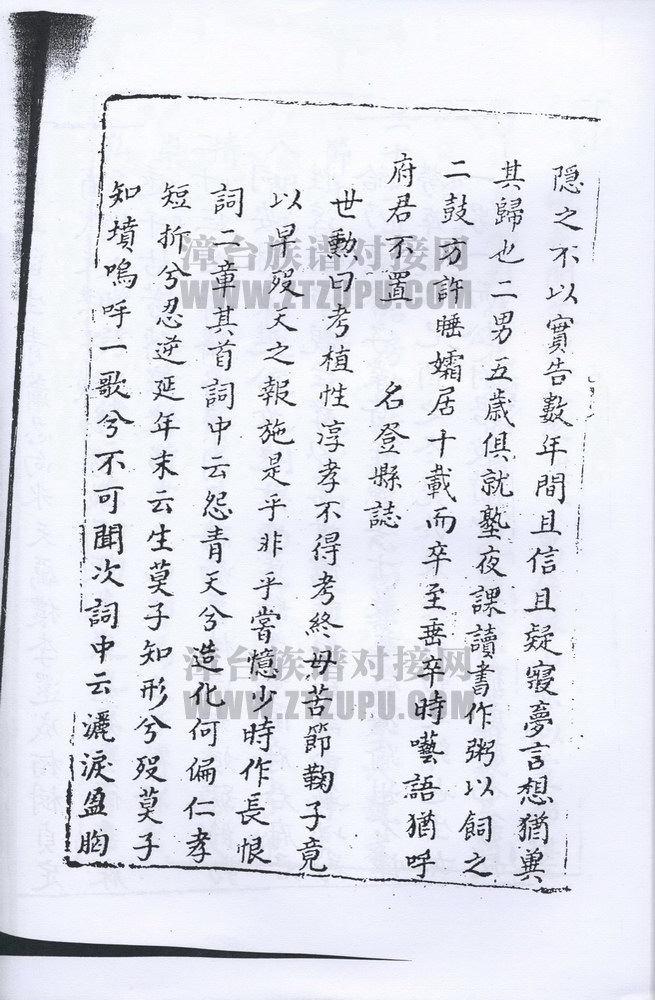 隱之不以實告數年間且信且疑寢夢言想猶冀
其歸也二男五歲俱就塾夜課讀書作粥以飼之
二鼓方許睡孀居十載而卒至垂卒時囈語猶呼
府君不置 名登縣誌
世勲曰考植性淳孝不得考終母苦節鞠子竟
以早歿天之報施是乎非乎嘗憶少時作長恨
詞二章其首詞中云怨青天兮造化何偏仁孝
短折兮忍逆延年末云生莫子知形兮歿莫子
知墳嗚呼一歌兮不可聞次詞中云灑淚盈胸
漳台族谱对接网
WWW.ZTZUPU.COM
漳台族谱对接网
WWW.ZTZUPU.COM